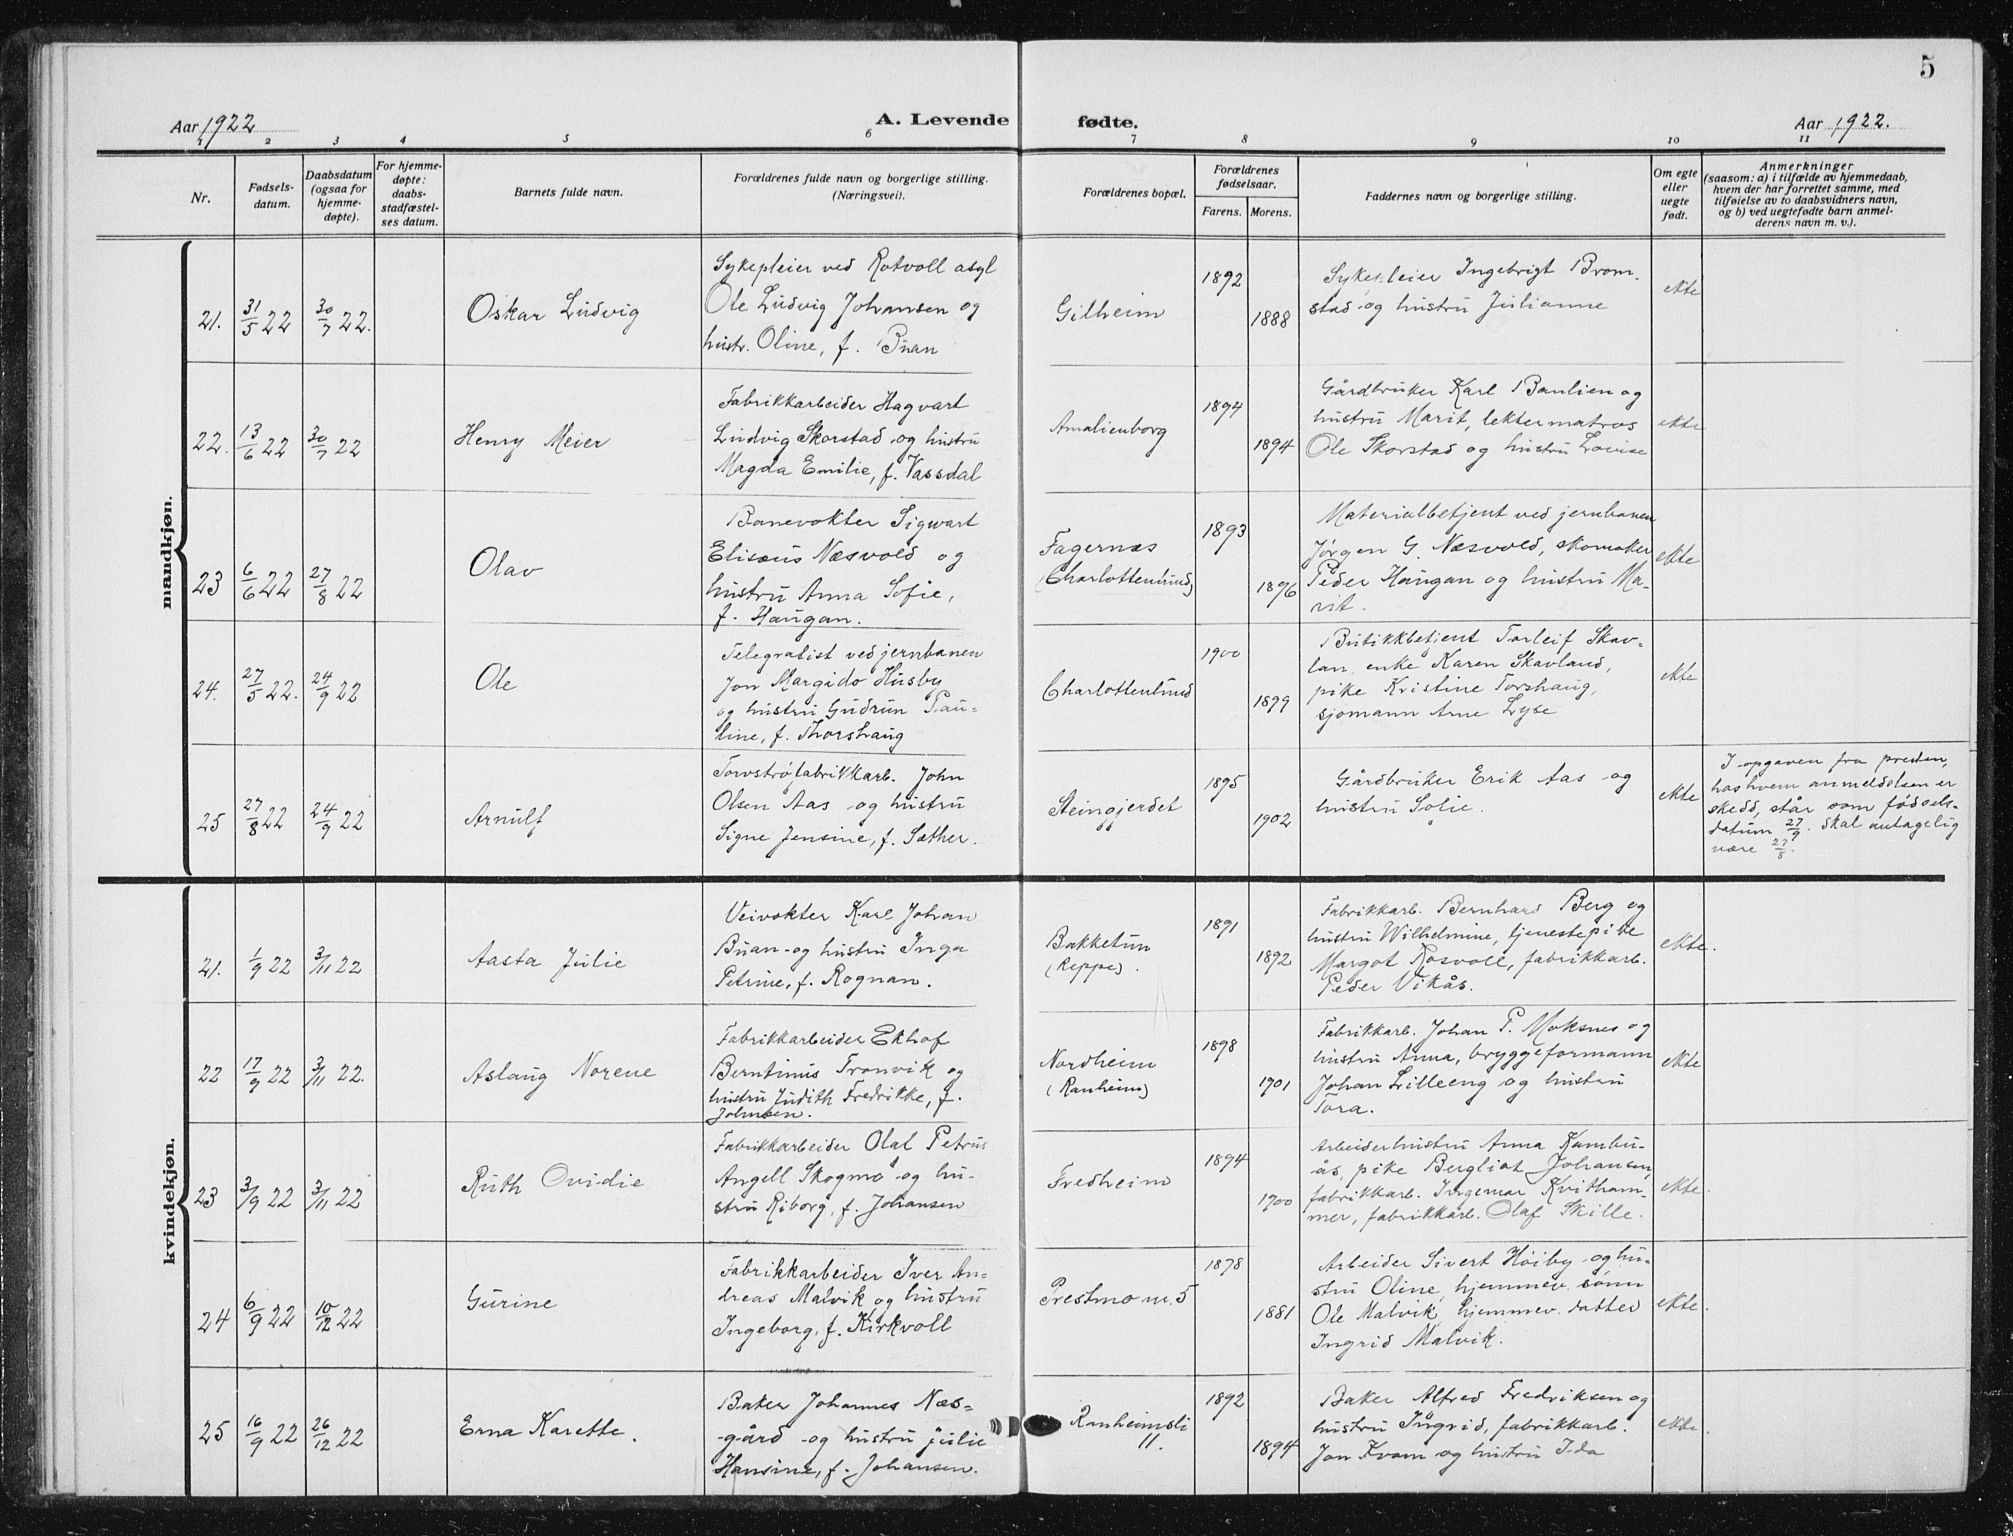 5
Aar 1922
A. Levende fødte.
Aar 1922.
1 2 3 4 5 6 7 8 9 10 11
Nr.
Fødsels-
datum.
Daabsdatum
(ogsaa for
hjemme-
døpte).
For hjemme-
døpte:
daabs-
stadfæstel-
ses datum.
Barnets fulde navn.
Forældrenes fulde navn og borgerlige stilling.
(Næringsvei).
Forældrenes bopæl.
Forældrenes
fødselsaar.
Farens. Morens.
Faddernes navn og borgerlige stilling.
Om egte
eller
uegte
født.
Anmerkninger
(saasom: a) i tilfælde av hjemmedaab,
hvem der har forrettet samme, med
tilføielse av to daabsvidners navn,
og b) ved uegtefødte barn anmel-
derens navn m. v.).
mandkjøn.
21. 31/5 22 30/7 22.
Oskar Ludvig
Sykepleier ved Rotvoll asyl
Ole Ludvig Johansen og
hustr. Oline, f. Buan
Gilheim
1892
1888
Sykepleier Ingebrigt Brom-
stad og hustru Julianne
ekte
22. 13/6 22 30/7 22
Henry Meier
Fabrikkarbeider Hagvart
Ludvig Skorstad og hustru
Magda Emilie, f. Vassdal
Amalienborg
1894
1894
Gårdbruker Karl Baulien og
hustru Marit, lektermatros
Ole Skorstad og hustru Lovise
ekte
23 6/6 22 27/8 22
Olav
Banevokter Sigwart
Eliseus Næsvold og
hustru Anna Sofie,
f. Haugan.
Fagernæs
(Charlottenlund)
1893
1896
Materialbetjent ved jernbanen
Jørgen G. Næsvold, skomaker
Peder Haugan og hustru Ma-
rit.
ekte
24. 27/5 22. 24/9 22
Ole
Telegrafist ved jernbanen
Jon Margido Husby
og hustru Gudrun Pau-
line, f. Thorshaug
Charlottenlund
1900
1899
Butikkbetjent Torleif Skav-
lan, enke Karen Skavland,
pike Kristine Torshaug,
sjømann Arne Lyse
ekte
25 27/8 22 24/9 22
Arnulf
Torvstrøfabrikkarb. John
Olsen Aas og hustru
Signe Jensine, f. Sæther.
Steingjerdet
1895
1902
Gårdbruker Erik Aas og
hustru Sofie.
ekte
I opgaven fra presten,
hos hvem anmeldelsen er
skedd, står som fødsels-
datum 27/9. Skal antagelig
være 27/8.
kvindekjøn.
21. 1/9 22 3/11 22
Aasta Julie
Veivokter Karl Johan
Buan og hustru Inga
Petrine, f. Rognan.
Bakketun
(Reppe).
1891
1892
Fabrikkarb. Bernhard Berg og
hustru Wilhelmine, tjenestepike
Margot Rosvoll, fabrikkarb.
Peder Vikås.
ekte.
22 17/9 22 3/11 22.
Aslaug Norene
Fabrikkarbeider Ekhof
Berntinus Tronvik og
hustru Judith Fredrikke, f.
Johnsen.
Nordheim
(Ranheim)
1898
1901
Fabrikkarb. Johan P. Moksnes og
hustru Anna, bryggeformann
Johan Lilleeng og hustru
Tora.
ekte
23 3/9 22 3/11 22
Ruth Ovidie
Fabrikkarbeider Olaf Petrus
Angell Skogmo og hu-
stru Riborg, f. Johansen
Fredheim
1894
1900
Arbeiderhustru Anna Kambu-
ås, pike Bergliot Johansen,
fabrikkarb. Ingemar Kvitham-
mer, fabrikkarb. Olaf Skille.
ekte.
24 6/9 22 10/12 22
Gurine
Fabrikkarbeider Iver An-
dreas Malvik og hustru
Ingeborg, f. Kirkvoll
Prestmo nr. 5
1878
1881
Arbeider Sivert Høiby og hu-
stru Oline, hjemmev. sønn
Ole Malvik, hjemmev. datter
Ingrid Malvik.
ekte.
25 16/9 22 26/12 22
Erna Karette.
Baker Johannes Næs-
gård og hustru Julie
Hansine, f. Johansen.
Ranheimsli
11.
1892
1894
Baker Alfred Fredriksen og
hustru Ingrid, fabrikkarb.
Jon Kvam og hustru Ida
ekte.